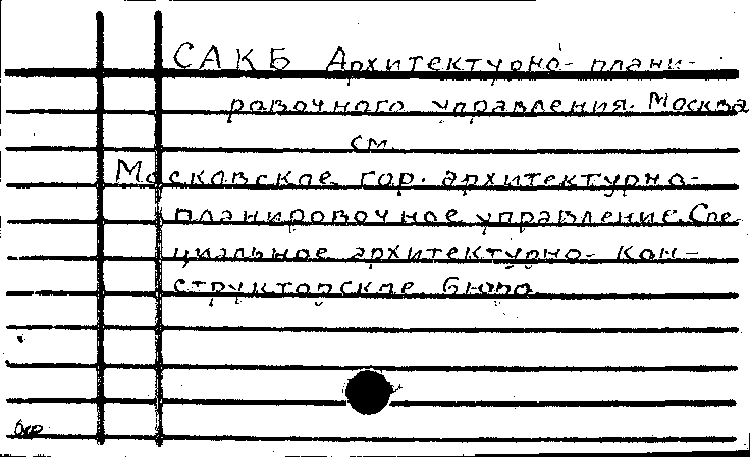 САКБ Архитектурно-плани-
ровочного управления. Москва
см.
Московское гор. архитектурно-
планировочное управление. Спе-
циальное архитектурно-кон-
структорское бюро